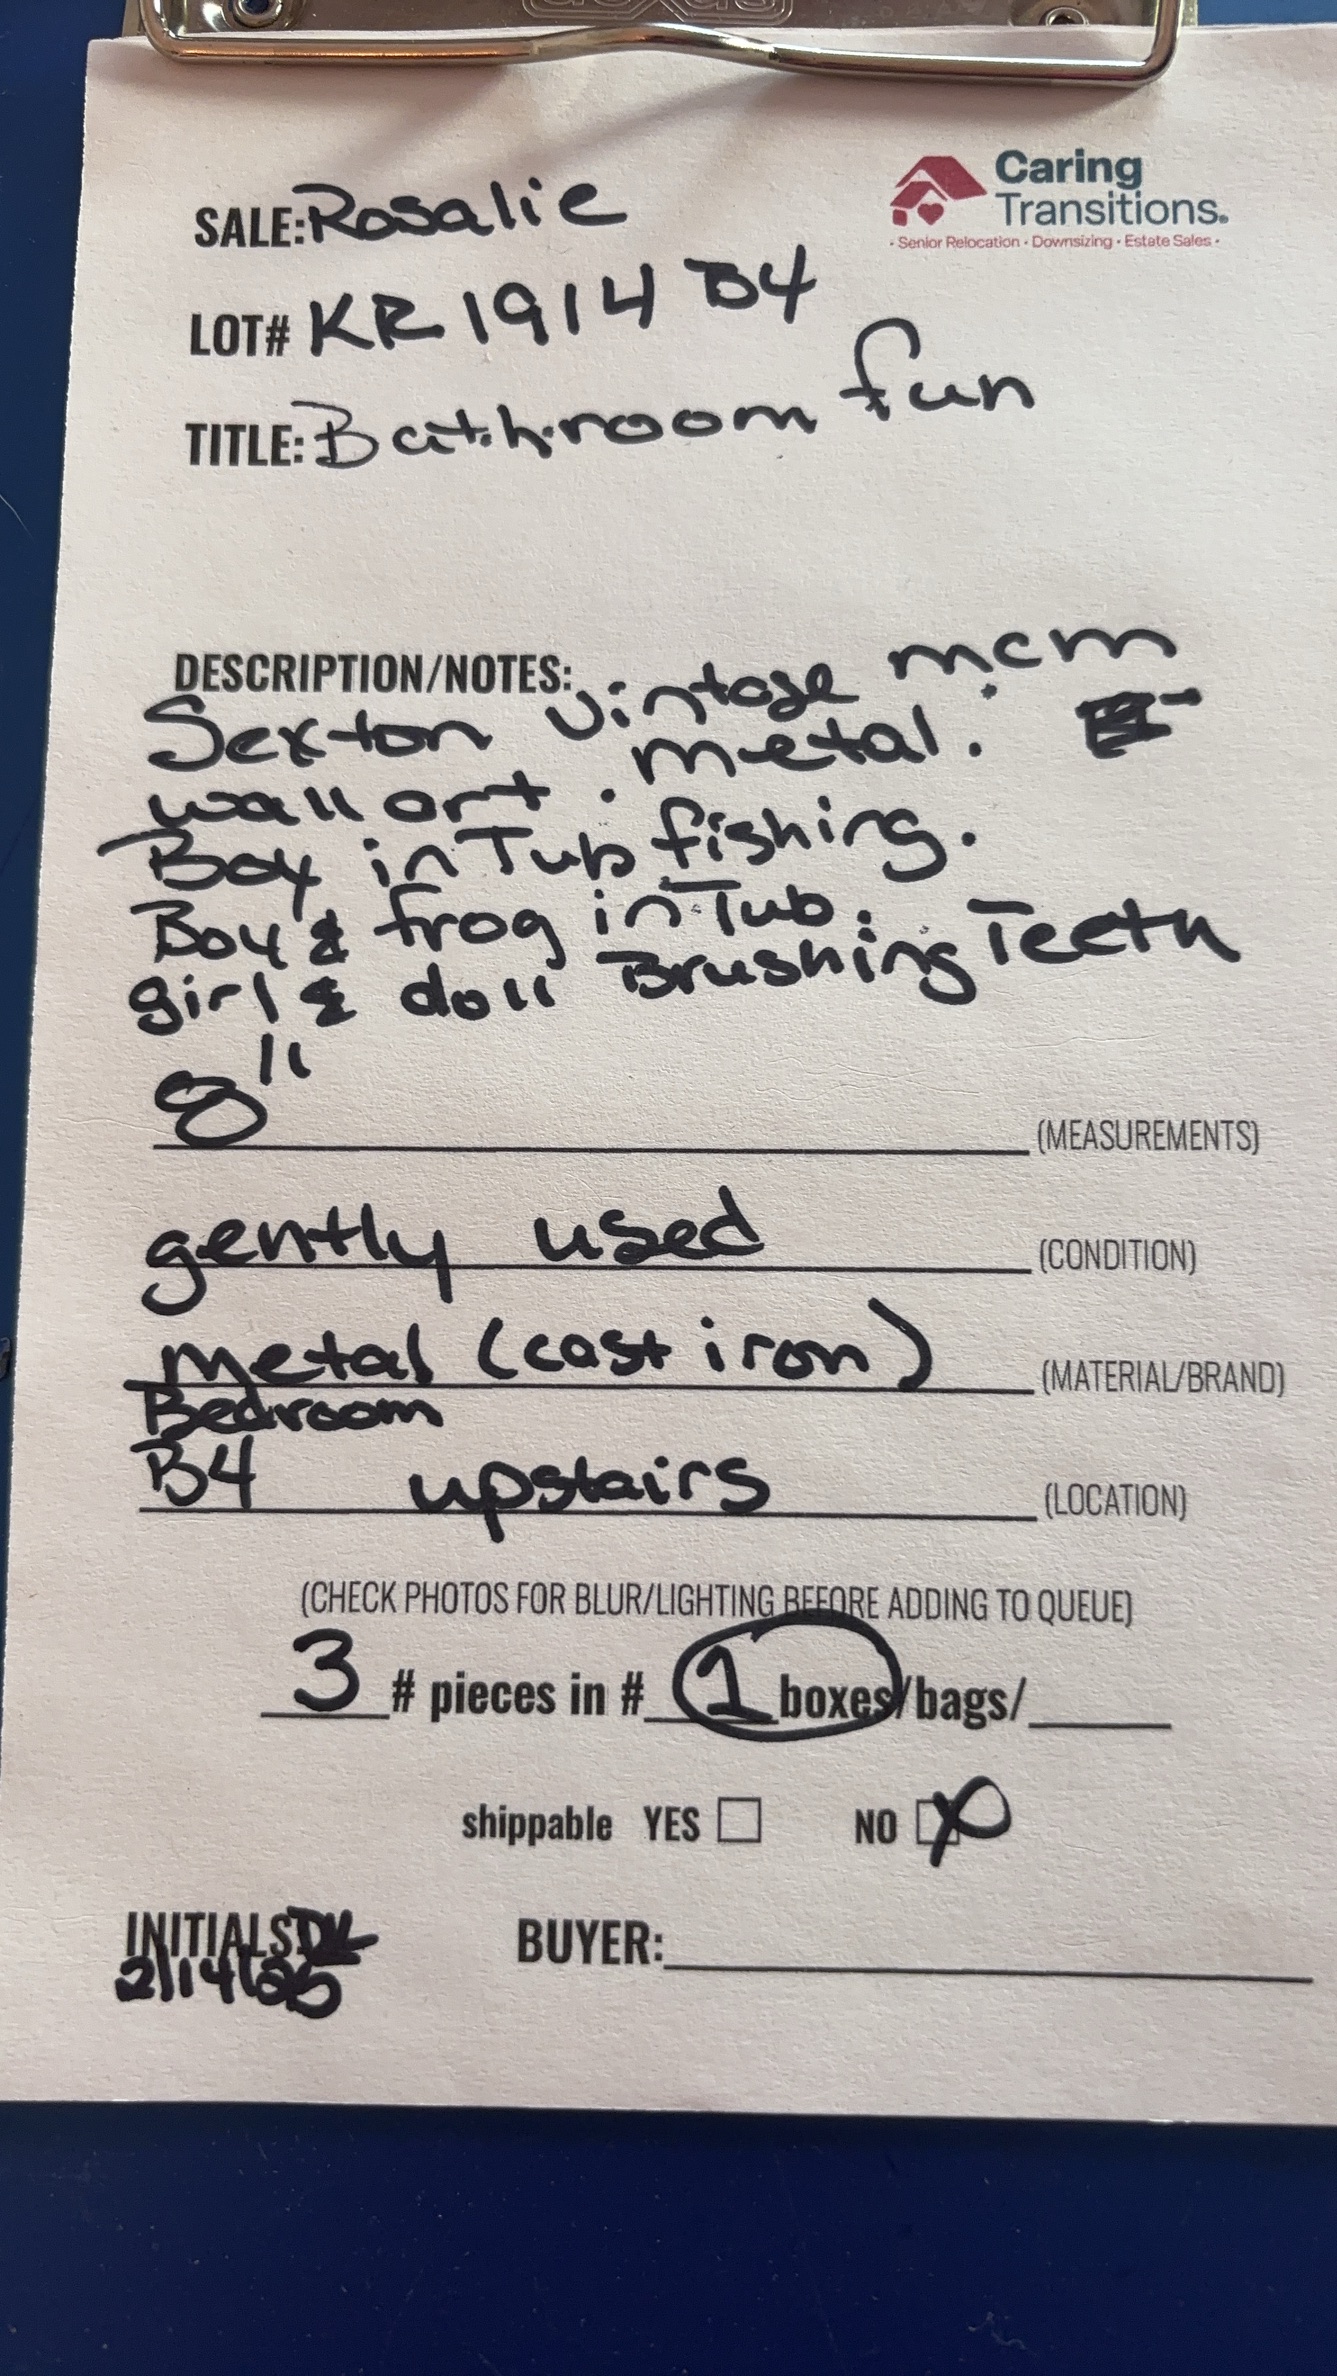 Caring
Transitions.
• Senior Relocation • Downsizing • Estate Sales •
SALE: Rosalie
LOT# KR 1914 B4
TITLE: Bathroom fun
DESCRIPTION/NOTES:
Sexton vintage mcm
wall art. metal.
Boy in Tub fishing.
Boy & frog in Tub.
girl & doll Brushing Teeth
8" (MEASUREMENTS)
gently used (CONDITION)
metal (cast iron) (MATERIAL/BRAND)
Bedroom
B4 upstairs (LOCATION)
(CHECK PHOTOS FOR BLUR/LIGHTING BEFORE ADDING TO QUEUE)
3 # pieces in # 1 boxes/bags/
shippable YES NO X
INITIALS BUYER: